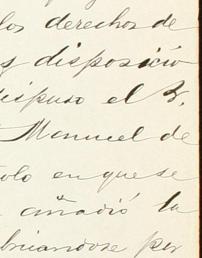 los derechos de
y disposició
dispuso el Sr.
Manuel de
olo en que se
añadió la
briandose por